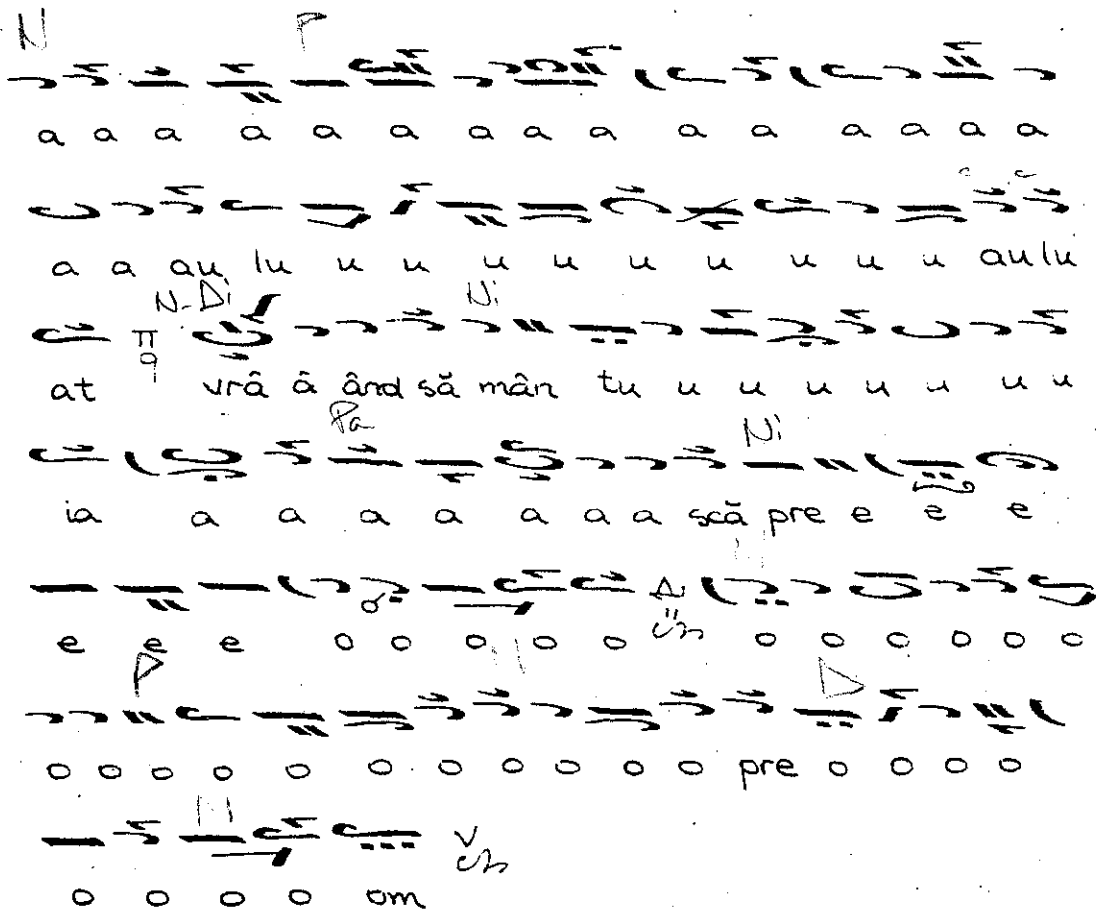 N P
a a a a a a a a a a a a a a a
a a au lu u u u u u u u u u au lu
N-Di Ni
at π q vrâ â ând să mân tu u u u u u u u
Pa Ni
ia a a a a a a a scă pre e e e
e e e o o o o o Δi o o o o o o
P D
o o o o o o o o o o pre o o o o
o o o o om